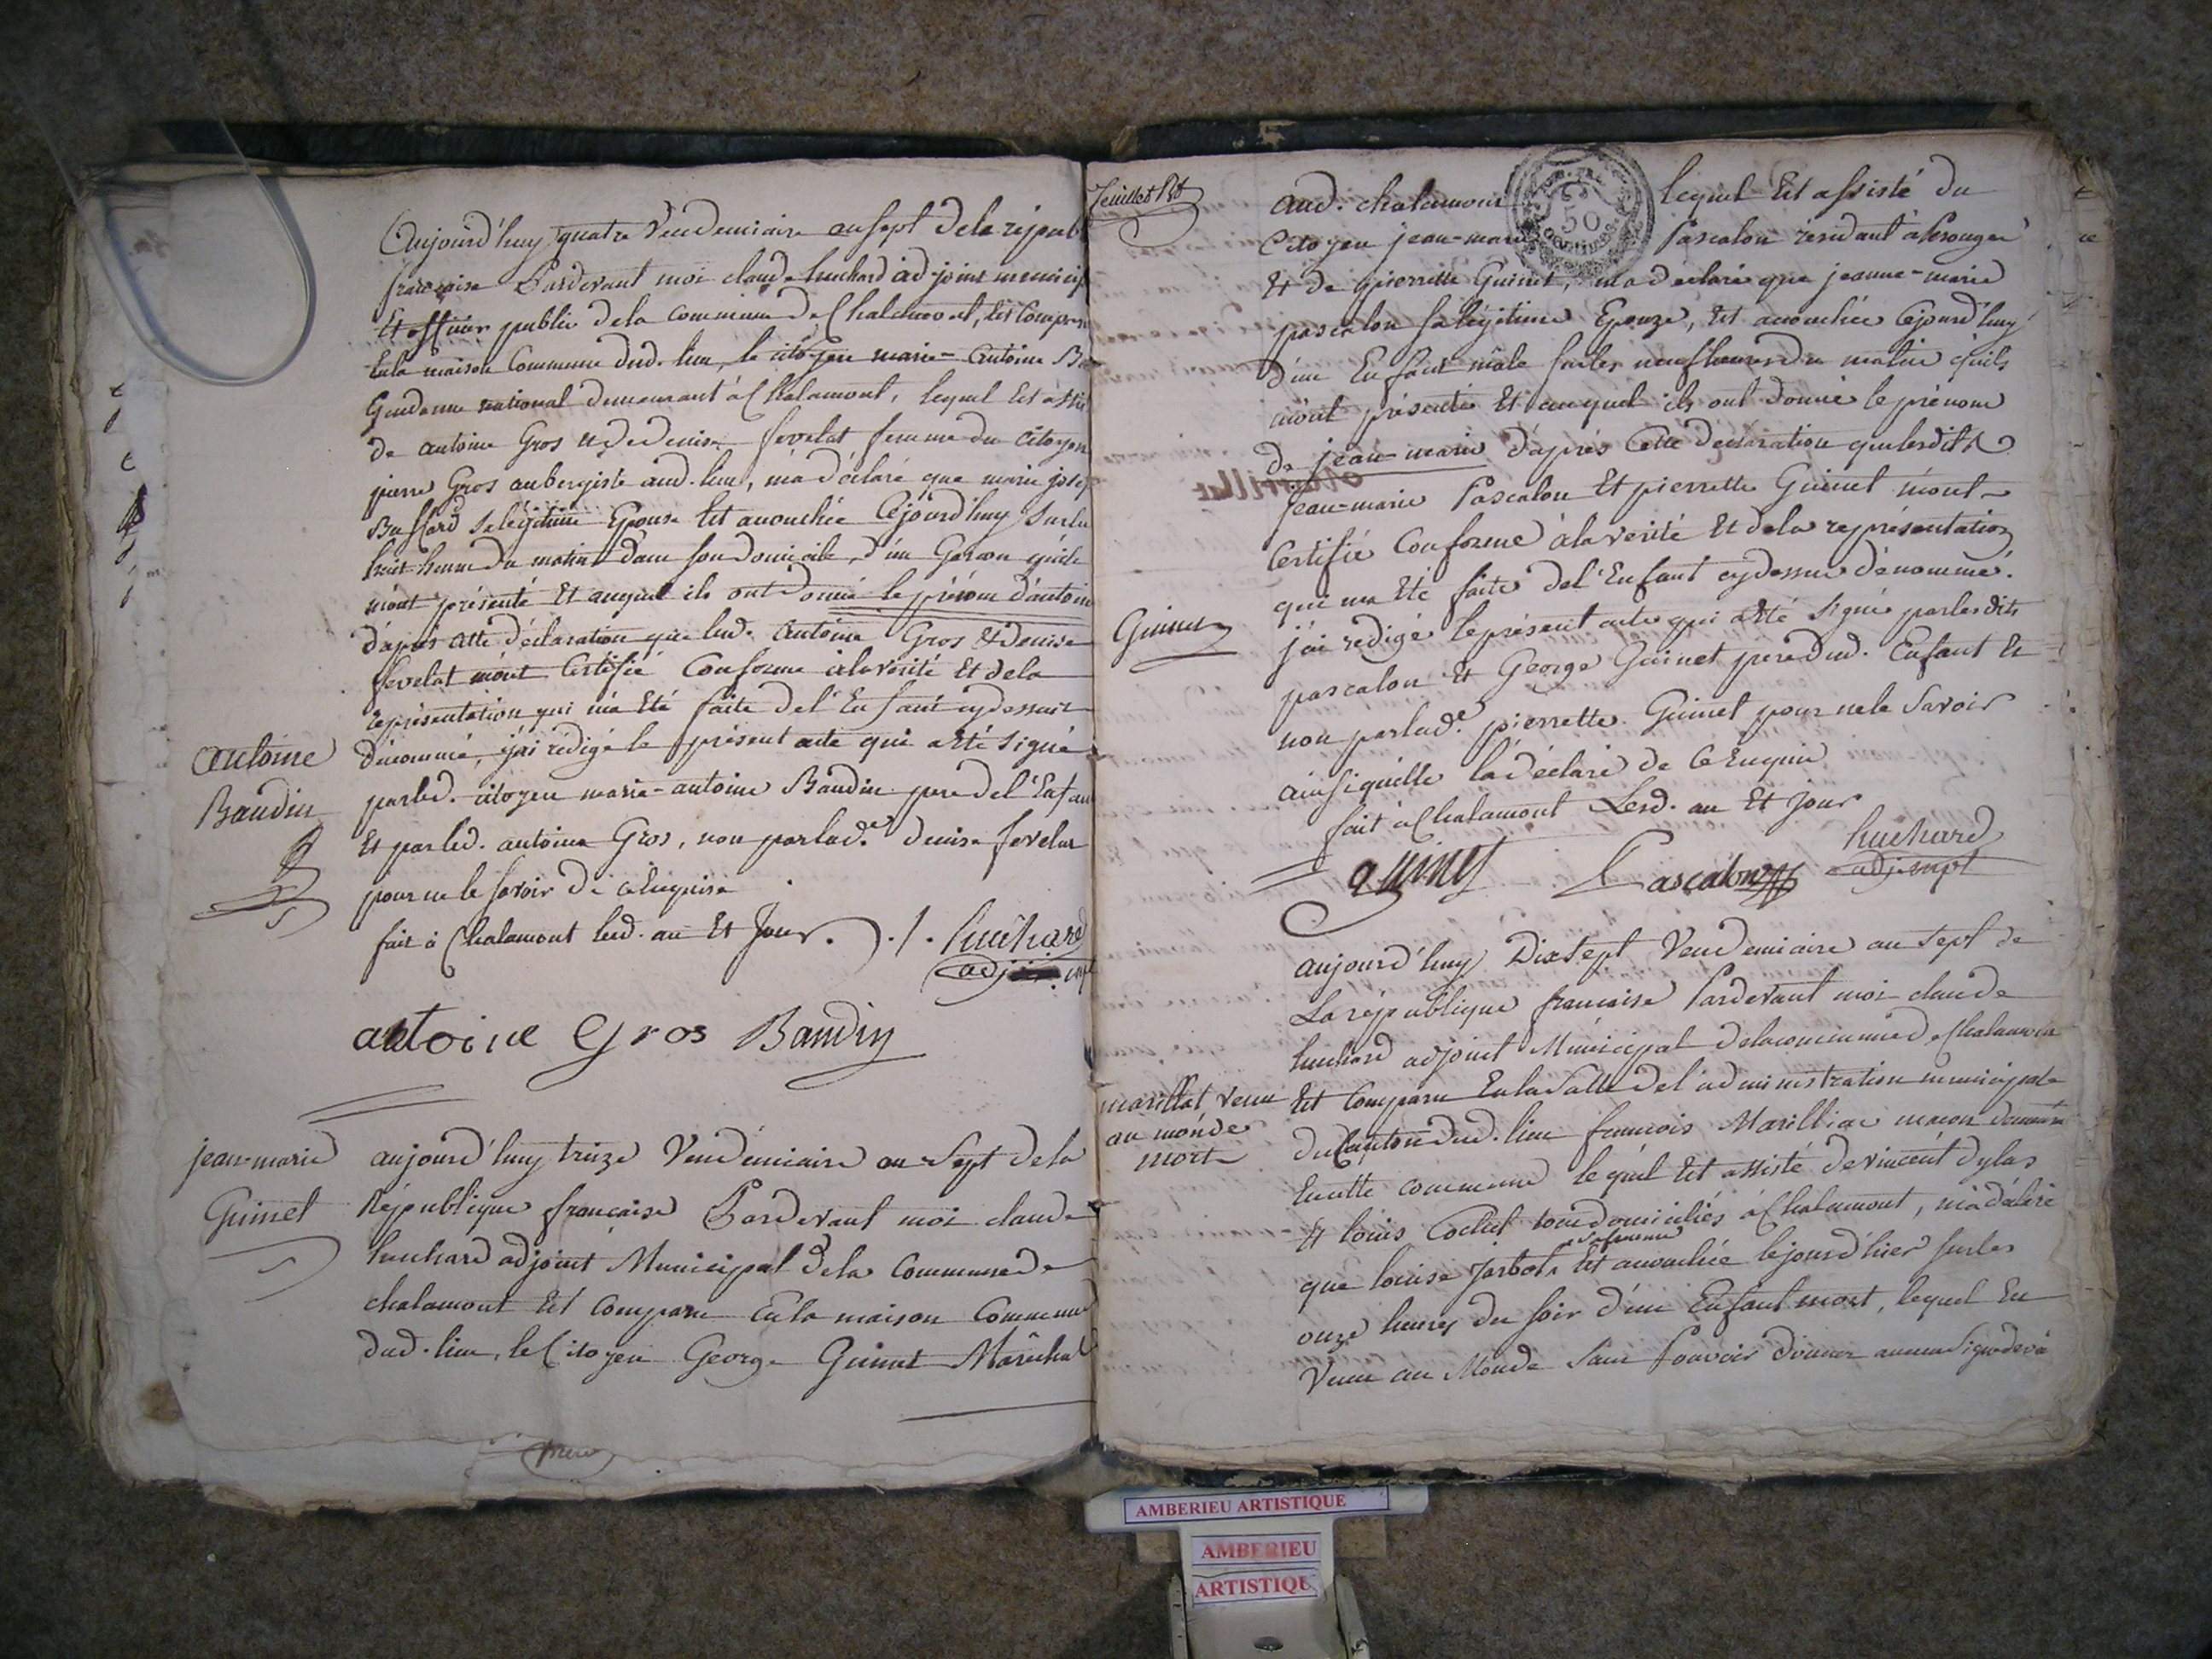 Aujourd'huy quatre Vendemiaire an sept de la répub
francaise Pardevant moi claude huchard adjoint municip
Et officier public de la commune de Chalamont, Est Comparu
En la maison Commune dud. lieu, le citoyen marie-Antoine
Gendarme national demeurant à Chalamont, lequel Est assis
de antoine Gros et de denise fevelat femme du citoyen
pierre Gros aubergiste aud. lieu, m'a déclaré que marie josep
Buffard sa légitime Epouse Est acouchée Cejourd'huy Surles
huit heures du matin dans son domicile, d'un Garcon qu'ils
m'ont présenté Et auquel ils ont donné le prénom d'antoin
d'après cette déclaration que led. Antoine Gros et denise
fevelat m'ont Certifié Conforme à la vérité Et de la
représentation qui m'a Eté faite de l'Enfant cydessus
dénommé, j'ai rédigé le présent acte qui a Eté Signé
parled. citoyen marie-antoine Baudin pere de l'Enfan
Et par led. antoine Gros, non par lad.e denise fevelat
pour ne le savoir de ce Enquise
fait à Chalamont led. an Et Jour.
huchard
adj. mpl
antoine Gros Baudin
Antoine
Baudin
jean-marie
Guinet
aujourd'huy treize Vendémiaire an Sept de la
République francaise Pardevant moi claude
huchard adjoint Municipal de la Commune de
chalamont Est Comparu En la maison Commune
dud. lieu, le Citoyen George Guinet Maréchal
feuillet
50
Centimes
aud. chalamont lequel Est assisté du
Citoyen jean-marie Pascalon résidant à
Et de pierrette Guinet, m'a déclaré que jeanne-marie
pascalon sa légitime Epouze, Est acouchée Cejourd'huy
d'un Enfant mâle surles neuf heures du matin qu'ils
m'ont présenté Et auquel ils ont donné le prénom
de jean-marie d'après Cette déclaration que lesdits
Jean-marie Pascalon Et pierrette Guinet m'ont
Certifié Conforme à la vérité Et de la représentation
qui ma Eté faite de l'Enfant cydessus dénommé.
j'ai rédigé le présent acte qui a Eté Signé par lesdits
pascalon Et George Guinet pere dud. Enfant Et
non par lad.e pierrette Guinet pour ne le Savoir
ainsi qu'elle l'a déclaré de Ce Enquise
fait à Chalamont Lesd. an Et Jour
huchard
adj. mpl
Pascalon
Guinet
aujourd'huy Dix Sept Vendemiaire an sept de
La république francaise Pardevant moi claude
huchard adjoint Municipal de la commune de Chalamont
Est Comparu En la Salle de l'administration municipale
du Canton dud. lieu francois Marilliac macon demeurant
En cette commune lequel Est assisté de vincent dylas
Et louis Cochet tous domiciliés à Chalamont, m'a déclaré
sa femme
que louise Jarbot Est acouchée le jour d'hier surles
onze heures du soir d'un Enfant mort, lequel Est
Venu au Monde Sans Pouvoir donner aucun Signe de vie
marillat venu
au monde
mort
AMBERIEU ARTISTIQUE
AMBERIEU
ARTISTIQUE